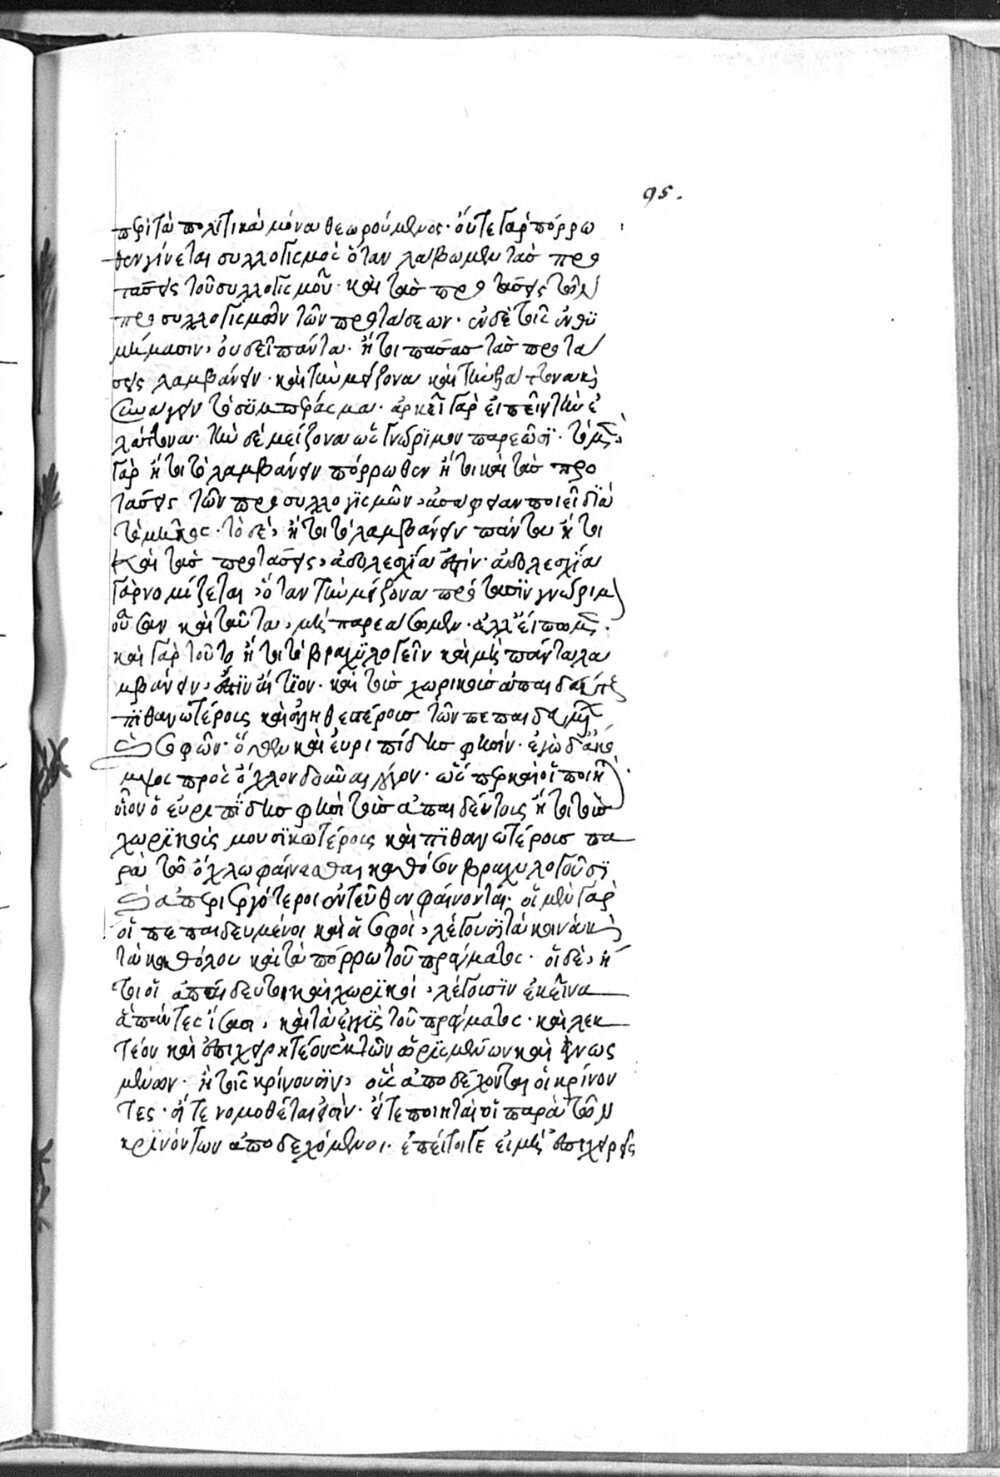 95.
περὶ τὰ πολιτικὰ μόνα θεωρούμενος· οὔτε γὰρ πόρρω
θεν γίνεται συλλογισμὸς ὅταν λαβωμεν τὰς προ
τάσεις τοῦ συλλογισμοῦ· καὶ τὰς προτάσεις τῶν
προσυλλογισμῶν τῶν προτάσεων· οὐδὲ τοῖς ἐνθυ
μήμασιν, οὐ δεῖ πάντα· ἤτοι πάσας τὰς προτά
σεις λαμβάνειν· καὶ τὴν μείζονα καὶ τὴν ἐλάττονα καὶ
συνάγειν τὸ συμπέρασμα· ἀρκεῖ γὰρ εἰπεῖν τὴν ἐ
λάττονα· τὴν δὲ μείζονα ὡς γνώριμον παρεῶσι· τὸ μὲν
γὰρ ἤτοι τὸ λαμβάνειν πόρρωθεν ἤτοι καὶ τὰς προ
τάσεις τῶν προσυλλογισμῶν, ἀσάφειαν ποιεῖ διὰ
τὸ μῆκος· τὸ δὲ, ἤτοι τὸ λαμβάνειν πάντα ἤτοι
καὶ τὰς προτάσεις, ἀδολεσχία ἐστίν· ἀδολεσχία
γὰρ νομίζεται, ὅταν τὴν μείζονα πρότασιν γνώριμον
οὖσαν καὶ ταῦτα, μὴ παρεάσωμεν· ἀλλ' εἴπωμεν·
καὶ γὰρ τοῦτο ἤτοι τὸ βραχυλογεῖν καὶ μὴ πάντα λα
μβάνειν, ἐστὶν αἴτιον· καὶ τοῖς χωρικοῖς ἀπαιδεύτοις
πιθανωτέροις καὶ ἀληθεστέροις τῶν πεπαιδευμένων
σοφῶν· ὅθεν καὶ εὐριπίδης φησίν· ἐγὼ δ' ἄκο
μψος πρὸς ὄχλον δοῦναι λόγον· ὥς περ καὶ οἱ ποιηταὶ
οἷον ὁ εὐριπίδης φησὶ τοὺς ἀπαιδεύτους ἤτοι τοὺς
χωρικοὺς μουσικωτέροις καὶ πιθανωτέροις πα
ρὰ τῷ ὄχλῳ φαίνεσθαι καθόσον βραχυλογοῦσι
σαπεριεργότεροι ἐντεῦθεν φαίνονται· οἱ μὲν γὰρ
οἱ πεπαιδευμένοι καὶ σοφοὶ, λέγουσι τὰ κοινὰ καὶ
τὰ καθόλου καὶ τὰ πόρρω τοῦ πράγματος· οἱ δὲ, ἤ
τοι οἱ ἀπαίδευτοι καὶ χωρικοὶ, λέγουσιν ἐκεῖνα
ἅπαντες ἴσασι, καὶ τὰ ἐγγὺς τοῦ πράγματος· καὶ λεκ
τέον καὶ ἐπιχειρητέον ἐκ τῶν ὡρισμένων καὶ
ἤ τοῖς κρίνουσιν, οἷς ἀποδέχονται οἱ κρίνον
τες· εἴτε νομοθέται εἰσὶν· εἴτε ποιηταὶ οἱ παρὰ τῶν
κρινόντων ἀποδεχόμενοι· ἐπείτοιγε εἰ μὴ ἐπιχειρεῖς